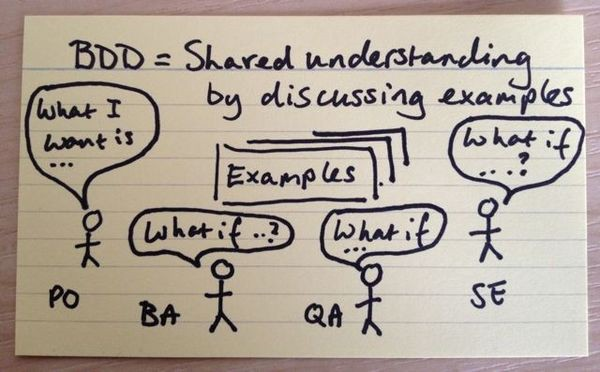 BDD = Shared understanding
by discussing examples
What I
want is
...
What if
....?
Examples
What if ..?
What if
...
PO
BA
QA
SE